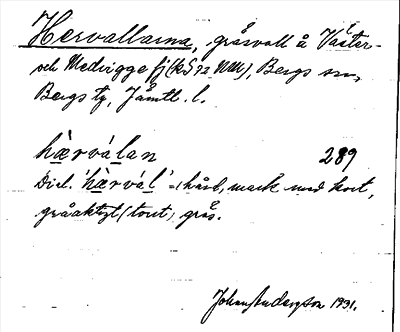 Hervallarna, gräsvall å Väster-
och Medvigge fj (kS 72 NM), Bergs sn,
Bergs tg, Jämtl. l.
hærválan 289
Dial. 'hærvál' = hård, mark med kort,
gråaktigt (tout) gräs.
Johan Anderson 1931.